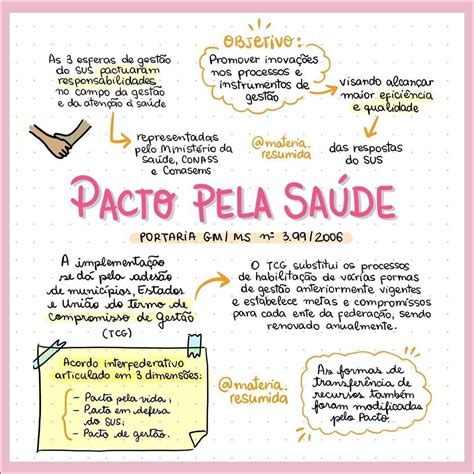 As 3 esferas de gestão
do SUS pactuaram
responsabilidades
no campo da gestão
e da atenção à saúde
representadas
pelo Ministério da
Saúde, CONASS
e Conasems
OBJETIVO:
Promover inovações
nos processos e
instrumentos de
gestão
visando alcançar
maior eficiência
e qualidade
das respostas
do SUS
@materia.
resumida
PACTO PELA SAÚDE
PORTARIA GM/MS nº 3.99/2006
A implementação
se dá pela adesão
de municípios, Estados
e União do termo de
Compromisso de Gestão
(TCG)
O TCG substitui os processos
de habilitação de várias formas
de gestão anteriormente vigentes
e estabelece metas e compromissos
para cada ente da federação, sendo
renovado anualmente.
Acordo interfederativo
articulado em 3 dimensões:
- Pacto pela vida;
- Pacto em defesa
do SUS;
- Pacto de gestão.
@materia.
resumida
As formas de
transferência de
recursos também
foram modificadas
pelo Pacto.